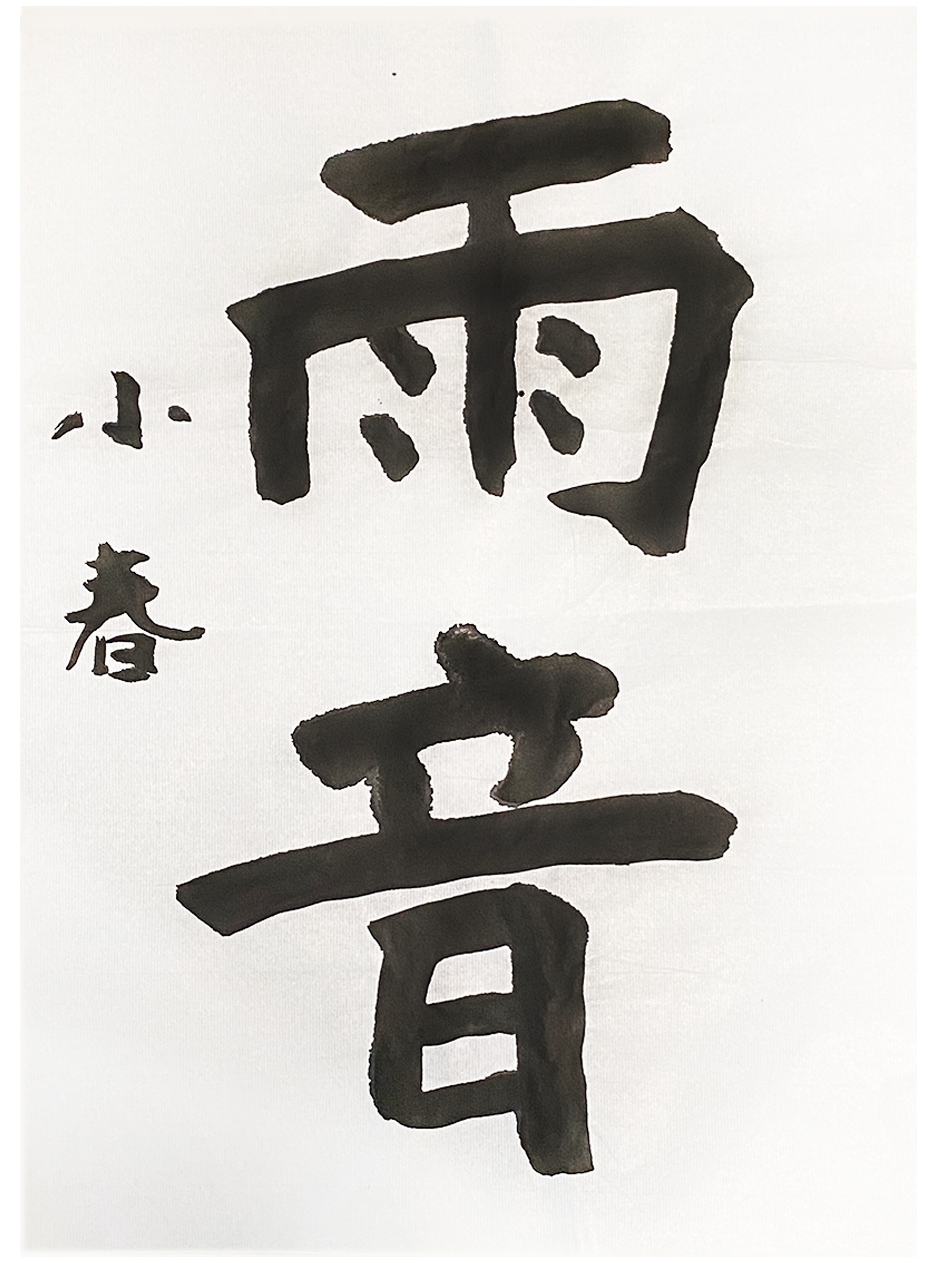 雨音
小春